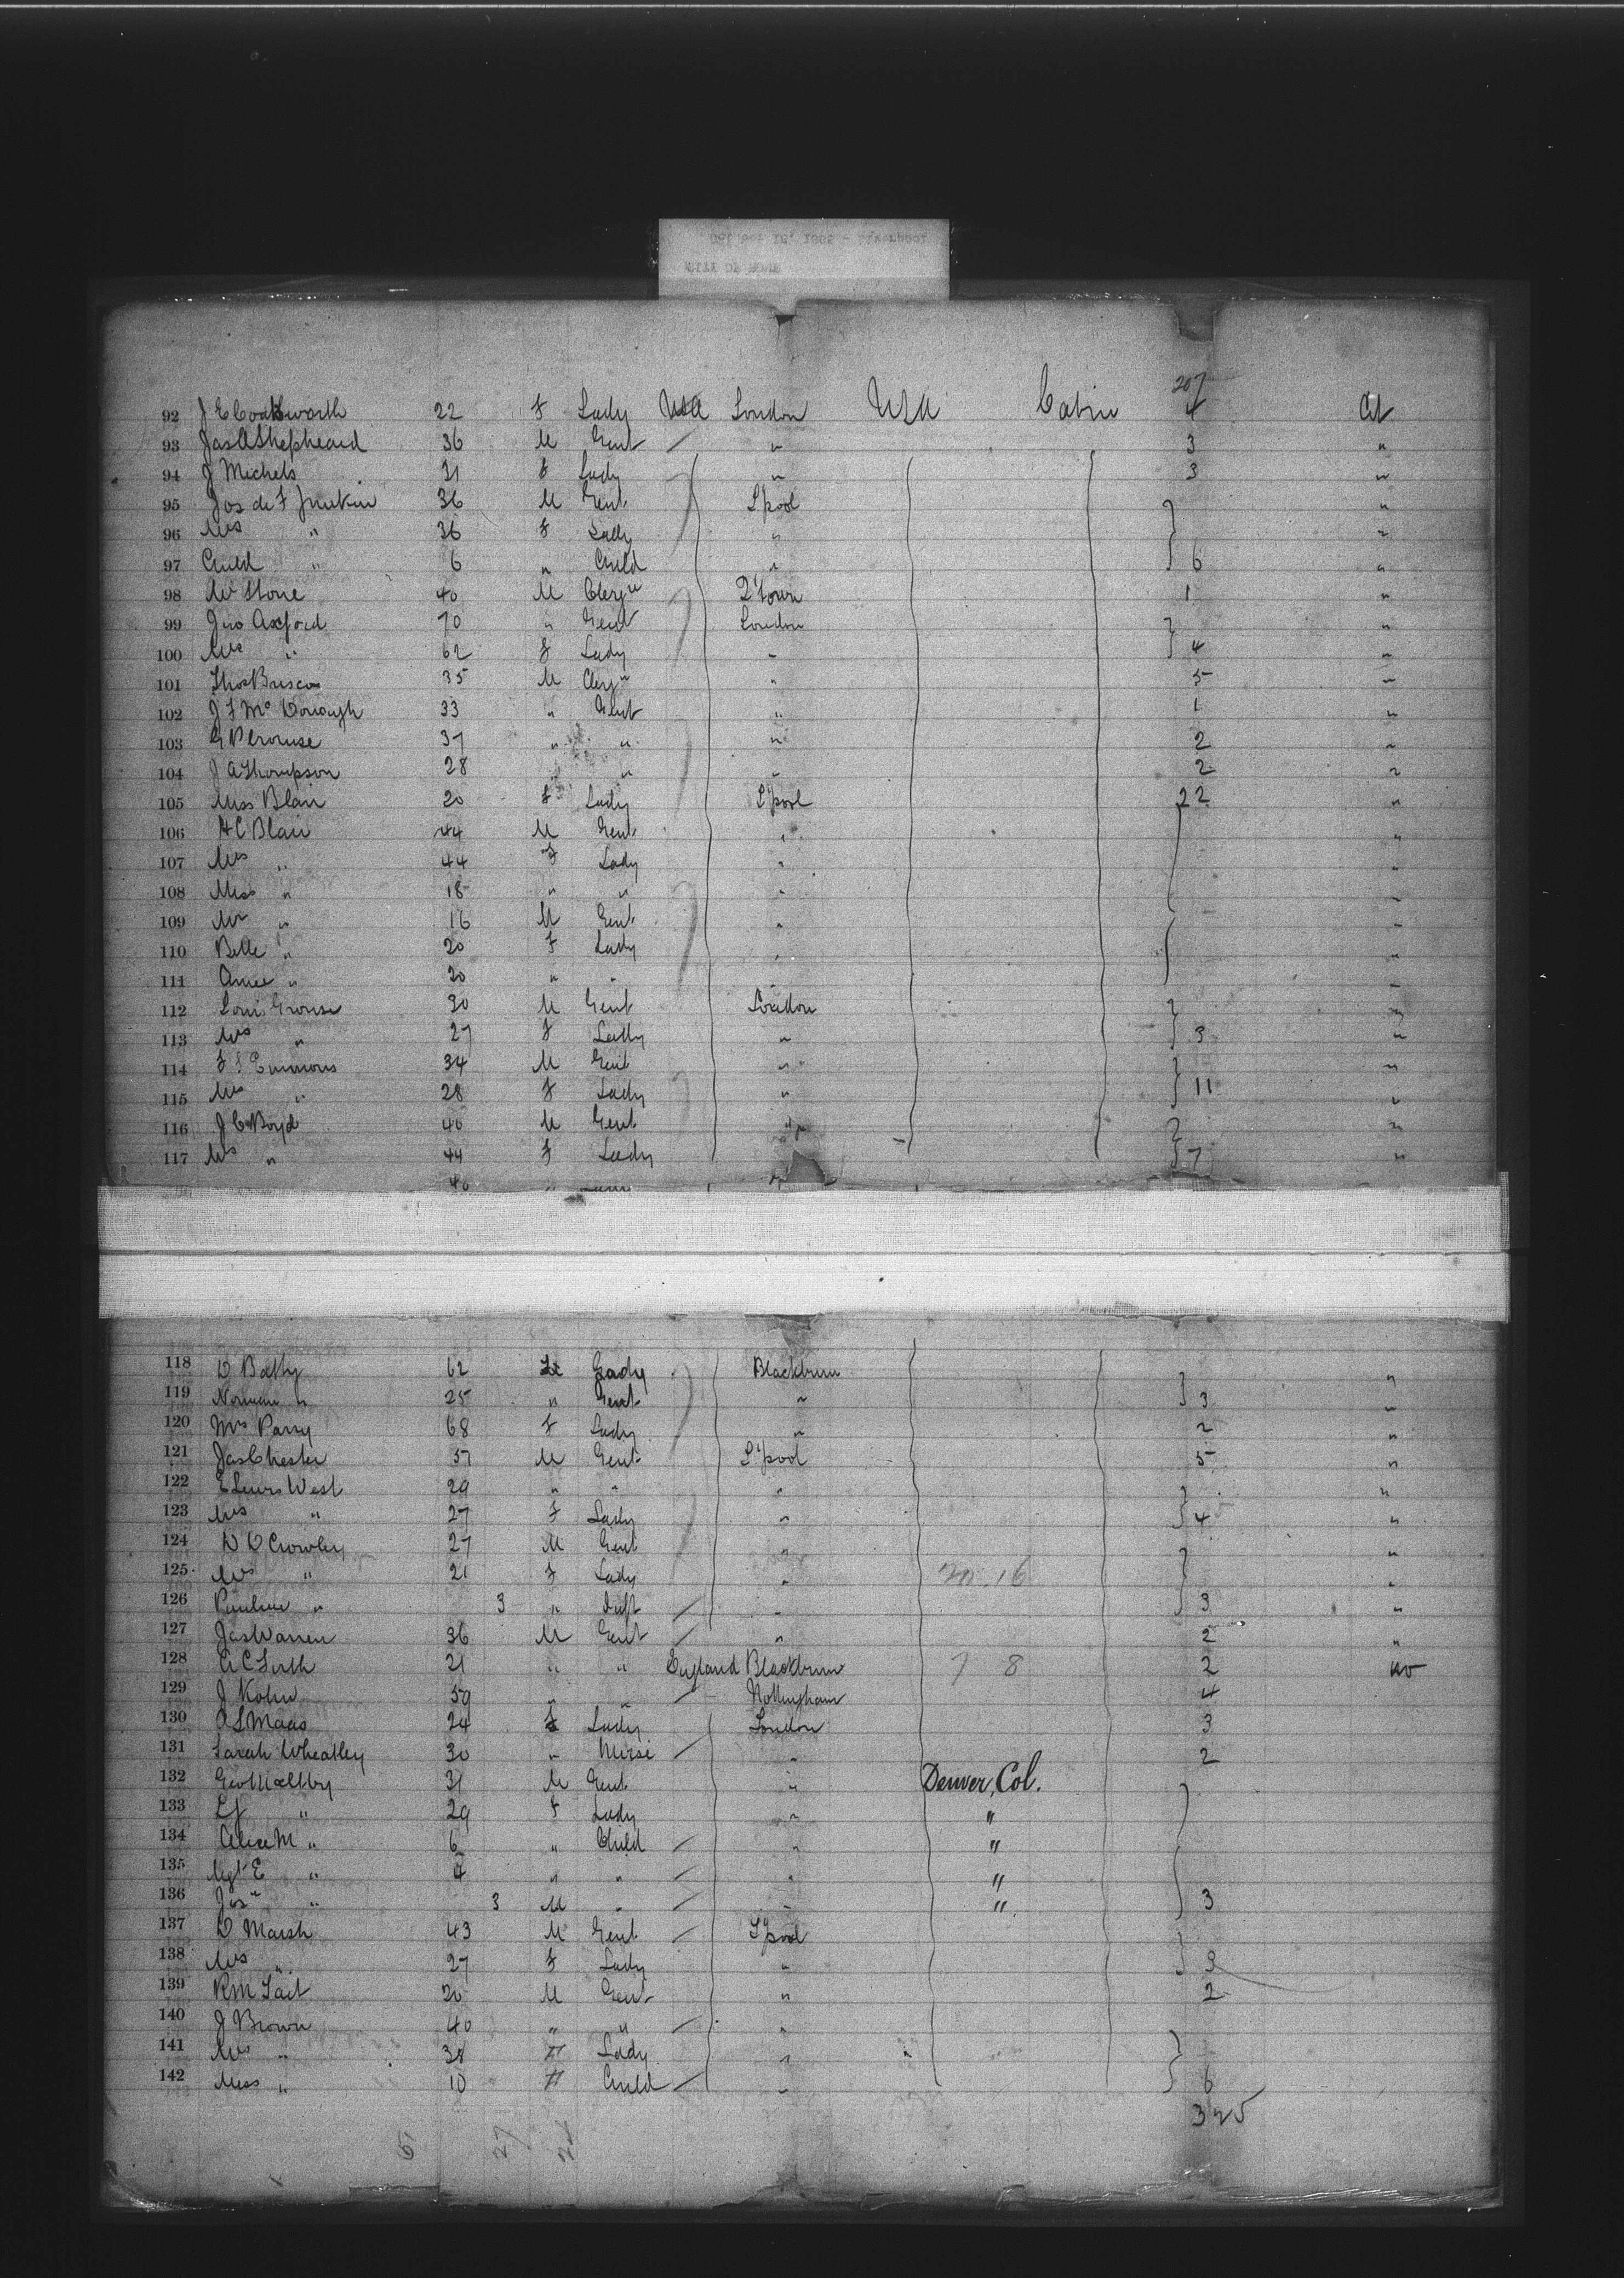 207
92 J E Coatsworth 22 F Lady USA London USA Cabin 4 At
93 Jas A Shepheard 36 M Gent " 3 "
94 J Michels 31 F Lady " 3 "
95 Jos de F Junkin 36 M Gent L'pool "
96 Mrs " 36 F Lady " "
97 Child " 6 " Child " 6 "
98 Mr Stone 40 M Clergn Q'Town 1 "
99 Jno Axford 70 " Gent London "
100 Mrs " 62 F Lady " 4 "
101 Thos Briscoe 35 M Clergn " 5 "
102 J F McDonough 33 " Gent " 1 "
103 G P Crouse 37 " " " 2 "
104 J A Thompson 28 " " " 2 "
105 Miss Blair 20 F Lady L'pool 22 "
106 H C Blair 44 M Gent " "
107 Mrs " 44 F Lady " "
108 Miss " 18 " " " "
109 Mr " 16 M Gent " "
110 Belle " 20 F Lady " "
111 " 20 " " " "
112 Louis Grouse 30 M Gent London "
113 Mrs " 27 F Lady " 3 "
114 F S Emmons 34 M Gent " "
115 Mrs " 28 F Lady " 11 "
116 J C Boyd 40 M Gent " "
117 Mrs " 44 F Lady " 7 "
40 "
118 D Batty 62 Lady Blackburn "
119 Norman " 25 " Gent " 3 "
120 Mrs Parry 68 F Lady " 2 "
121 Jas Chester 57 M Gent L'pool 5 "
122 E Lewis West 29 " " " "
123 Mrs " 27 F Lady " 4 "
124 D D Crowley 27 M Gent " "
125 Mrs " 21 F Lady " 16 "
126 Pauline " 3 " Inft " 3 "
127 Jas Warren 36 M Gent " 2 "
128 A C Firth 21 " " England Blackburn 7 8 2 no
129 J Kohn 59 " " Nottingham 4
130 A L Maas 24 F Lady London 3
131 Sarah Wheatley 30 " Nurse " 2
132 Geo Maltby 31 M Gent " Denver, Col.
133 " 29 F Lady " "
134 Alice M " 6 " Child " "
135 Mgt E " 4 " " " "
136 Jos " 3 M " " " 3
137 D Marsh 43 M Gent L'pool
138 Mrs " 27 F Lady " 3
139 R M Tait 20 M Gent " 2
140 J Brown 40 " " "
141 Mrs " 38 F Lady "
142 Miss " 10 F Child " 6
325
27